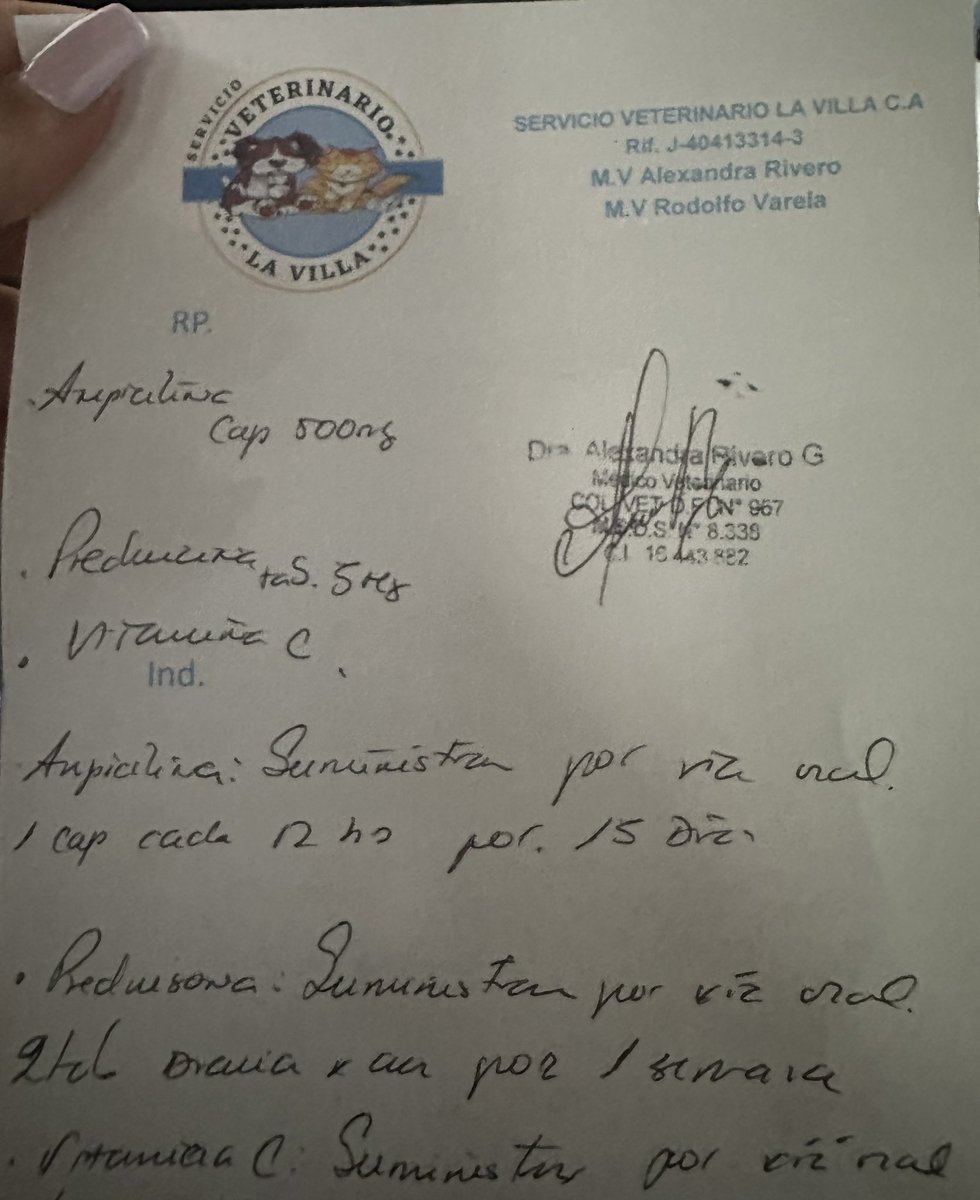 SERVICIO
VETERINARIO
LA VILLA
SERVICIO VETERINARIO LA VILLA C.A
Rif. J-40413314-3
M.V Alexandra Rivero
M.V Rodolfo Varela
RP.
. Ampicilina
Cap 500mg
Dra Alexandra Rivero G
Médico Veterinario
COL VET D.F. N° 967
M.S.D.S. N° 8.338
C.I 16.443.882
. Prednisona tab. 5mg
. Vitamina C.
Ind.
Ampicilina: Suministrar por vía oral.
1 cap cada 12 hs por. 15 Días
. Prednisona: Suministrar por vía oral.
2 tab diaria por 1 semana
. Vitamina C: Suministrar por vía oral